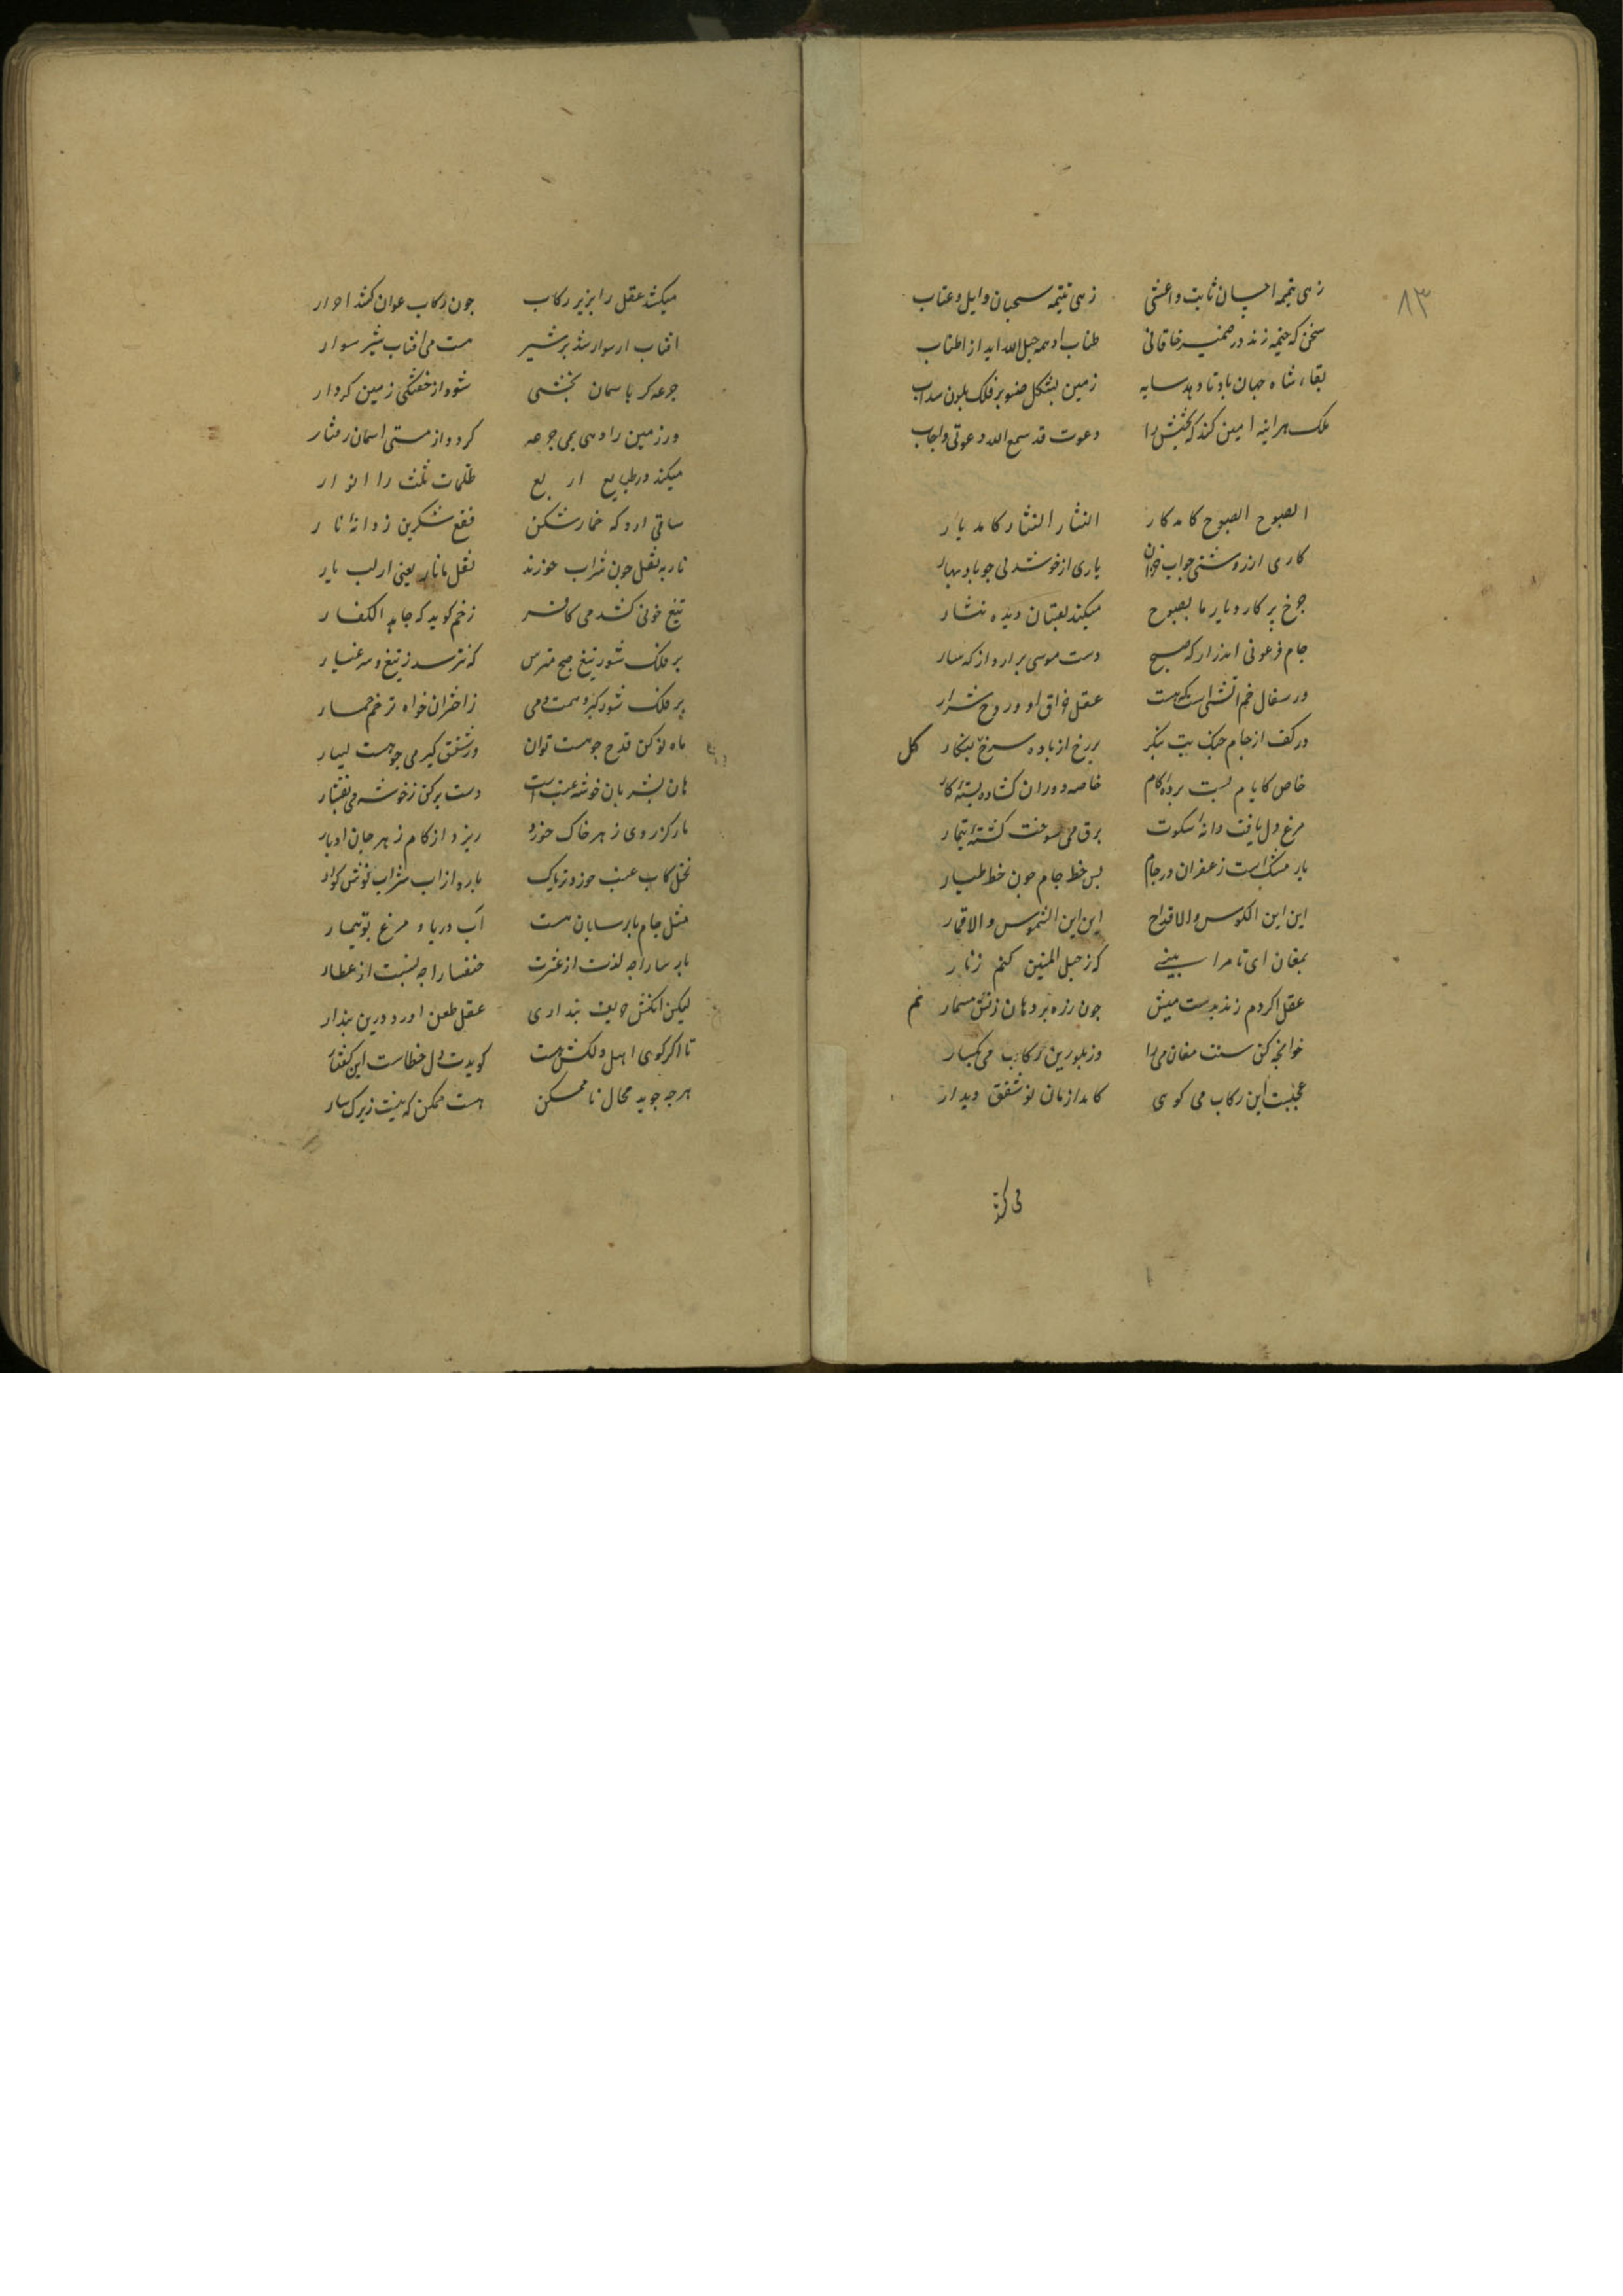 ۸۳
زهی تمیمه احسان ثابت و اعشی زهی نتیمه سحبان وایل و عتاب
سخن که خیمه زند در ضمیر خاقانی طناب او همه حبل الله اید از اطناب
بقاء شاه جهان باد تا دهد سایه زمین بشکل صنوبر فلک بلون سداب
ملک هر اینه امین کند که بخشش را دعوت قد سمع الله دعوتی و اجاب
الصبوح الصبوح کامد کار النثار النثار کامد یار
کاری از روشنی جو اب خزان یاری از خوشدلی جو باد بهار
چرخ بر کار و یار ما بصبوح میکند لعبتان دیده نثار
جام فرعونی اندر ار که صبح دست موسی برارد از کهسار
در سفال خم اتشی است که هست عقل حراق او و روح شرار
در کف از جام خنک بت بنکر بر رخ از باده سرخ بت بنکار
کل
خاص کایام بست پرده کام خاصه دوران کشاده بسته کار
مرغ دل یافت دانه سکوت برق می سوخت کشته تیمار
یار مشک است زعفران در جام پس خط جام چون خط طیار
این این الکوس و الاقداح این این الشموس و الاقمار
بمغان ای تا مرا بینی که ز حبل المتین کنم زنار
عقل اکر دم زند بدست میش جون زره بر دهان زنش مسمار
نم
خوانجه کن سنت مغان می را وز بلورین رکاب می بکسار
عجبست این رکاب می کوی کامد از مان نو شفق دیدار
می کشد
میکشد عقل را بزیر رکاب جون رکاب عوان کشد احرار
افتاب ار سوار شد بر شیر هست می افتاب شیر سوار
جرعه کر باسمان بخشی شود از خفتکی زمین کردار
ور زمین را دهی بمی جرعه کردد از مستی اسمان رفتار
میکند در طبایع اربع ظلمات ثلث را انوار
ساقی ارد که خمار شکن فقع شکرین ز دانه نار
نار به نقل جون شراب خورند نقل ما نار یعنی از لب یار
تیغ خونی کشد می کافر زخم کوید که جاهد الکفار
بر فلک شو ز تیغ صبح مترس که نترسد ز تیغ و سر عیار
بر فلک شو ز کبر و همت می ز اختران خواه تر خم خمار
ماه نو کن قدح جو هست توان وز شفق کیر می جو هست یسار
هان بشر بان خوشه عنب است دست بر کن ز خوشه می بفشار
مار کز روی زهر خاک خورد ریزد از کام زهر جان اوبار
نخل کاب عنب خورد بارد از اب شراب نوش کوار
مثل جام پارسایان هست اب دریا و مرغ بوتیمار
پارسا را چه لذت از عشرت خنفسا را چه نسبت از عطار
لیکن انکش حریف بنداری عقل طعن اورد درین بندار
تا اکر کوی اهل دلکش هست کویدت دل خطاست این کفتار
هر چه جوید محال ناممکن هست ممکن که نیست زیرک سار